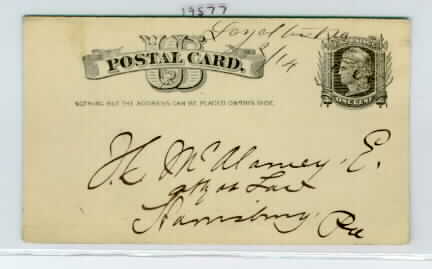 19577
Loyaltonville
8/14
U S
POSTAL CARD.
NOTHING BUT THE ADDRESS CAN BE PLACED ON THIS SIDE.
ONE CENT
H. McAlarney, E.
atty at Law
Harrisburg
Pa